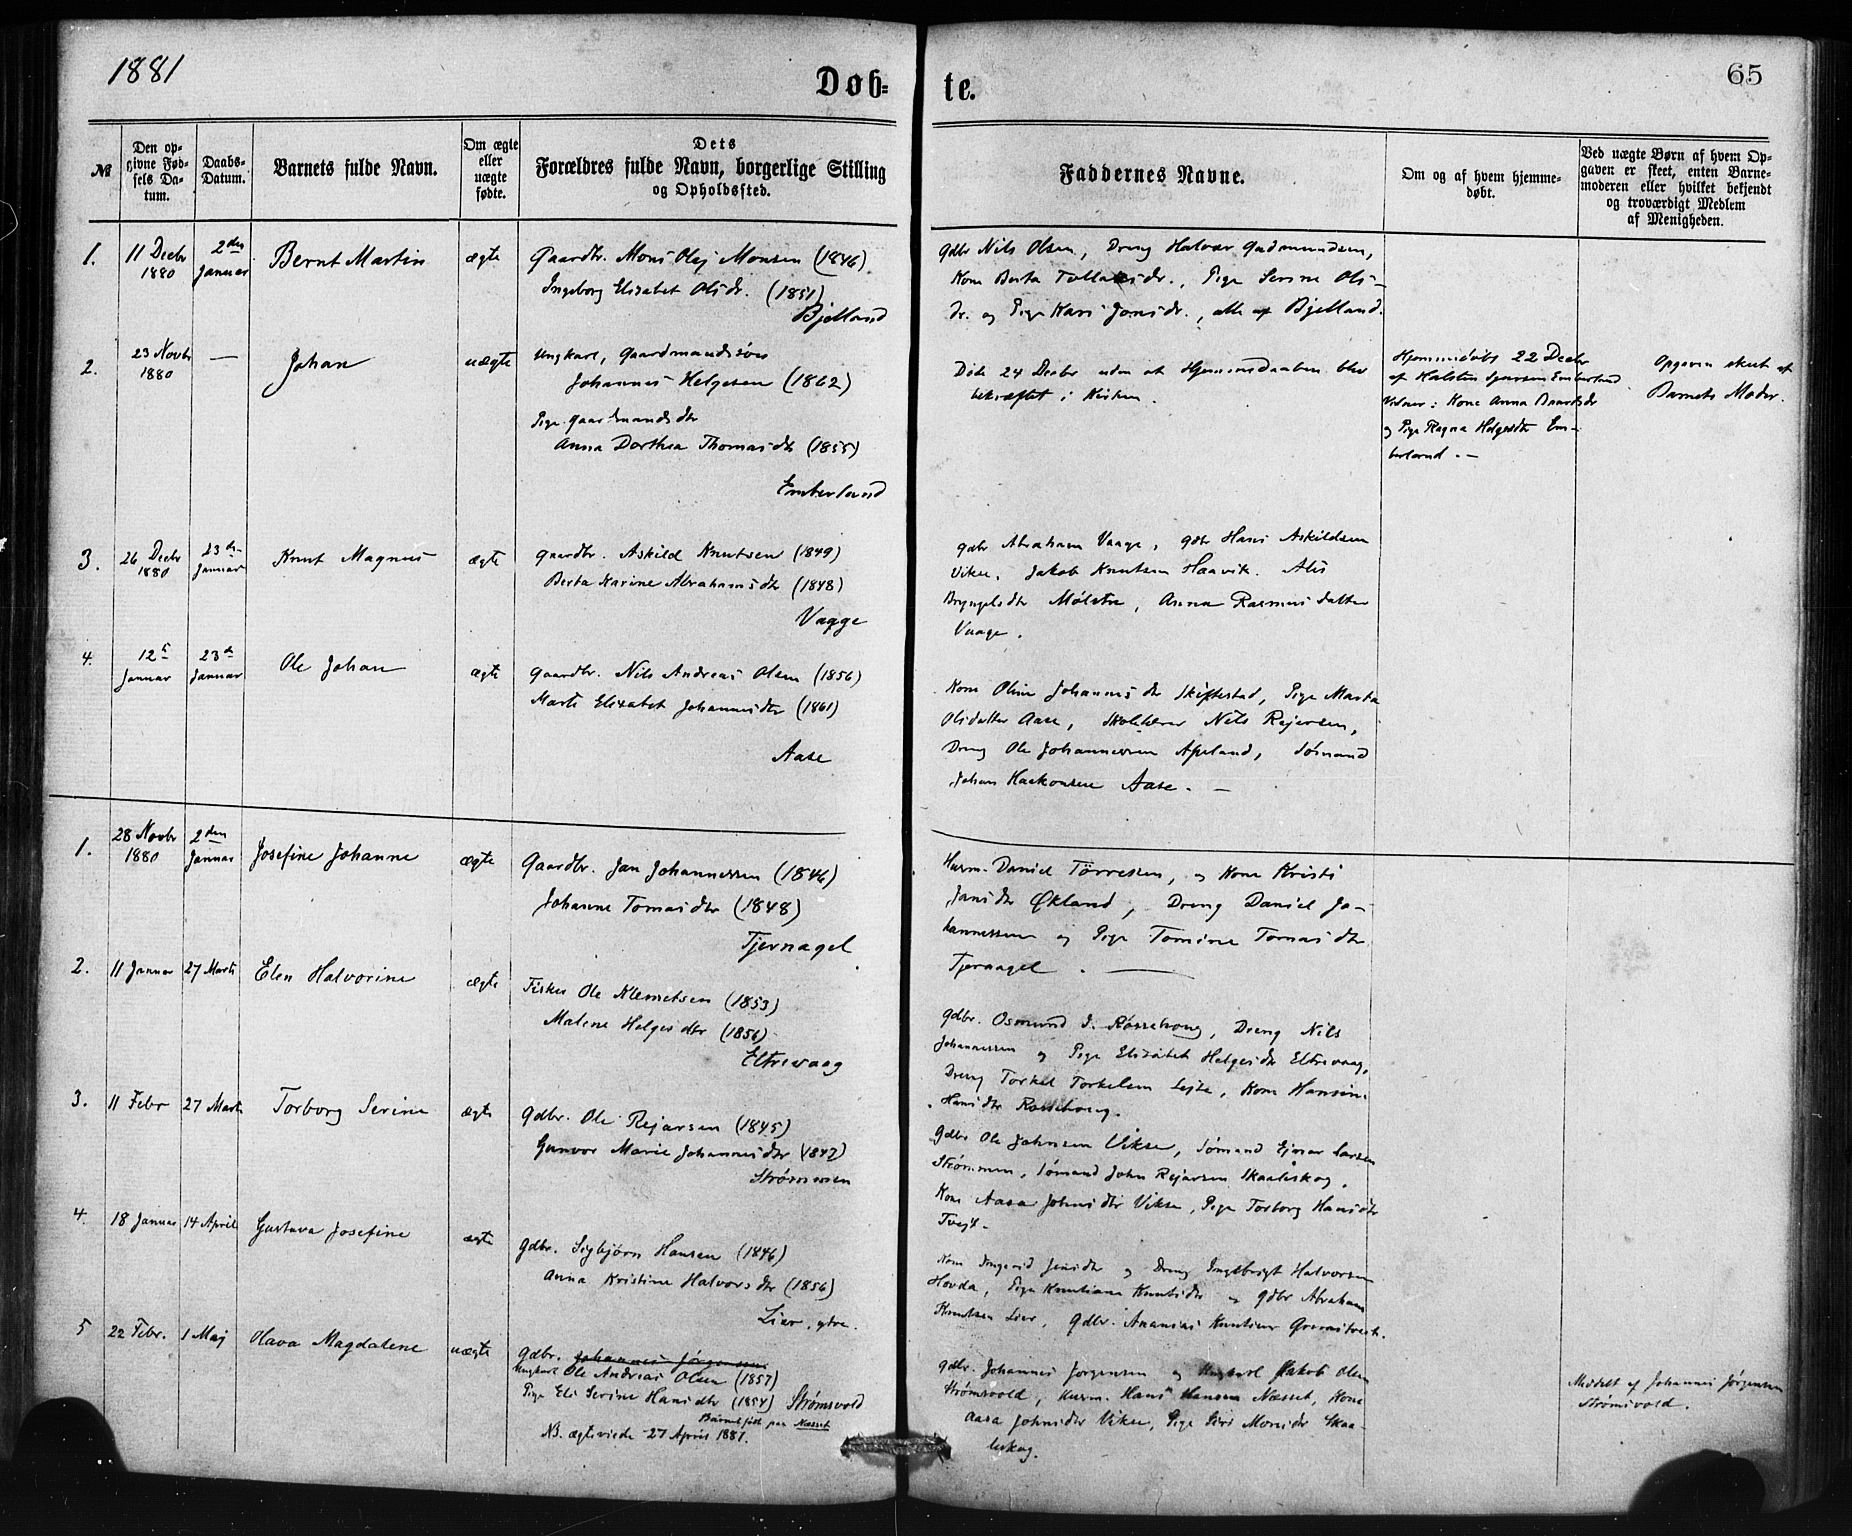 1881
Døb=
te.
65
№
Den op=
givne Fød=
sels Da=
tum.
Daabs=
Datum.
Barnets fulde Navn.
Om ægte
eller
uægte
fødte.
Dets
Forældres fulde Navn, borgerlige Stilling
og Opholdssted.
Faddernes Navne.
Om og af hvem hjemme=
døbt.
Ved uægte Børn af hvem Op=
gaven er skeet, enten Barne=
moderen eller hvilket bekjendt
og troværdigt Medlem
af Menigheden.
1.
11 Decbr
1880
2den
Januar
Bernt Martin
ægte
Gaardbr. Mons Olej Monsen (1846)
Ingeborg Elisabet Olsdr. (1851)
Bjelland
Gdbr Nils Olsen, Dreng Halvor Gudmundsen,
Kone Berta Tollaksdr., Pige Serine Ols-
dr. og Pige Kari Jonsdr., alle af Bjelland.
2.
23 Novbr
1880
—
Johan
uægte
Ungkarl, Gaardmandssøn
Johannes Helgesen (1862)
Pige. Gaardmandsdtr
Anna Dorthea Thomasdtr (1855)
Emberland
Døde 24 Decbr uden at Hjemmedaaben blev
bekræftet i Kirken.
Hjemmedøbt 22 Decbr
af Halsten Emberland
Vidner: Kone Anna Baardsdr
og Pige Ragna Helgesdtr Em-
berland. —
Opgaven skeet af
Barnets Moder.
3.
26 Decbr
1880
23de
Januar
Knut Magnus
ægte
Gaardbr. Askild Knutsen (1849)
Berta Karine Abrahamsdtr (1848)
Vaage
Gdbr Abraham Vaage, Gdbr Hans Askildsen
Vikse, Jakob Knutsen Haavik. Alis
Bryngelsdtr Mølstre, Anna Rasmusdatter
Vaage.
4.
12te
Januar
23de
Januar
Ole Johan
ægte
Gaardbr. Nils Andreas Olsen (1856)
Marte Elisabet Johannesdtr (1861)
Aase
Kone Oline Johannesdtr Skiftestad, Pige Marta
Olsdatter Aase, Skolelærer Nils Rejersen,
Dreng Ole Johannessen Apeland, Sømand
Johan Haakonsen Aase. —
1.
28 Novbr
1880
2den
Januar
Josefine Johanne
ægte
Gaardbr. Jan Johannessen (1846)
Johanne Tomasdtr (1848)
Tjernagel
Husm. Daniel Tørresen, og Kone Kristi
Jansdtr Økland, Dreng Daniel Jo-
hannessen og Pige Tomine Tomasdtr
Tjernagel. —
2.
11 Januar
27 Marts
Elen Halvorine
ægte
Fisker Ole Klemetsen (1853)
Malene Helgesdtr (1856)
Eltrevaag
Gdbr. Osmund J. Røssehoug, Dreng Nils
Johannessen og Pige Elisabet Helgesdtr Eltrevaag,
Dreng Torkel Torkelsen Lejte, Kone Hansine
Hansdtr Røssehoug.
3.
11 Febr
27 Marts
Torborg Serine
ægte
Gdbr. Ole Rejersen (1845)
Gunvor Marie Johannesdtr (1847)
Strømmen
Gdbr Ole Johnsen Vikse, Sømand Ejnar Larsen
Strømmen, Sømand John Rejersen Skaaleskog,
Kone Aasa Johnsdtr Vikse, Pige Torborg Hansdtr
Tvejt.
4.
18 Januar
14 April
Gustava Josefine
ægte
Gdbr. Sigbjørn Hansen (1846)
Anna Kristine Halvorsdtr (1856)
Lier, ytre.
Kone Ingerid Jensdtr og Dreng Ingebrigt Halvorsen
Hovda, Pige Knutiane Knutsdtr og Gdbr Abraham
Knutsen Lier, Gdbr. Ananias Knutsen
5
22 Febr.
1 Maj
Olava Magdalene
uægte
Gdbr. Johannes Jørgensen
Ungkarl Ole Andreas Olsen (1857)
Pige Eli Serine Hansdtr (1854) Strømsvold
Barnet født paa Næsset
NB. ægteviede 27 April 1881.
Gdbr. Johannes Jørgensen og Ungkarl Jakob Olsen
Strømsvold, Husm. Hans Hansen Næsset, Kone
Aasa Johnsdtr Vikse, Pige Siri Monsdtr Skaa-
leskog.
Meddelt af Johannes Jørgensen
Strømsvold.